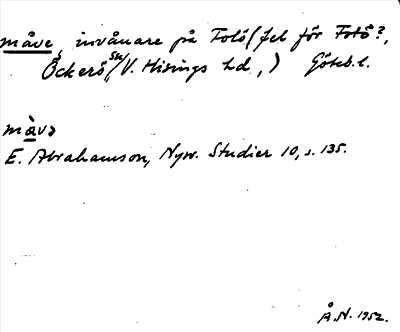 måve, invånare på Fotö (fel för Fotö?,
Öckerö sn, V. Hisings hd,) Göteb. l.
måvə
E. Abrahamson, Nyv. Studier 10, s. 135.
Å.H. 1952.